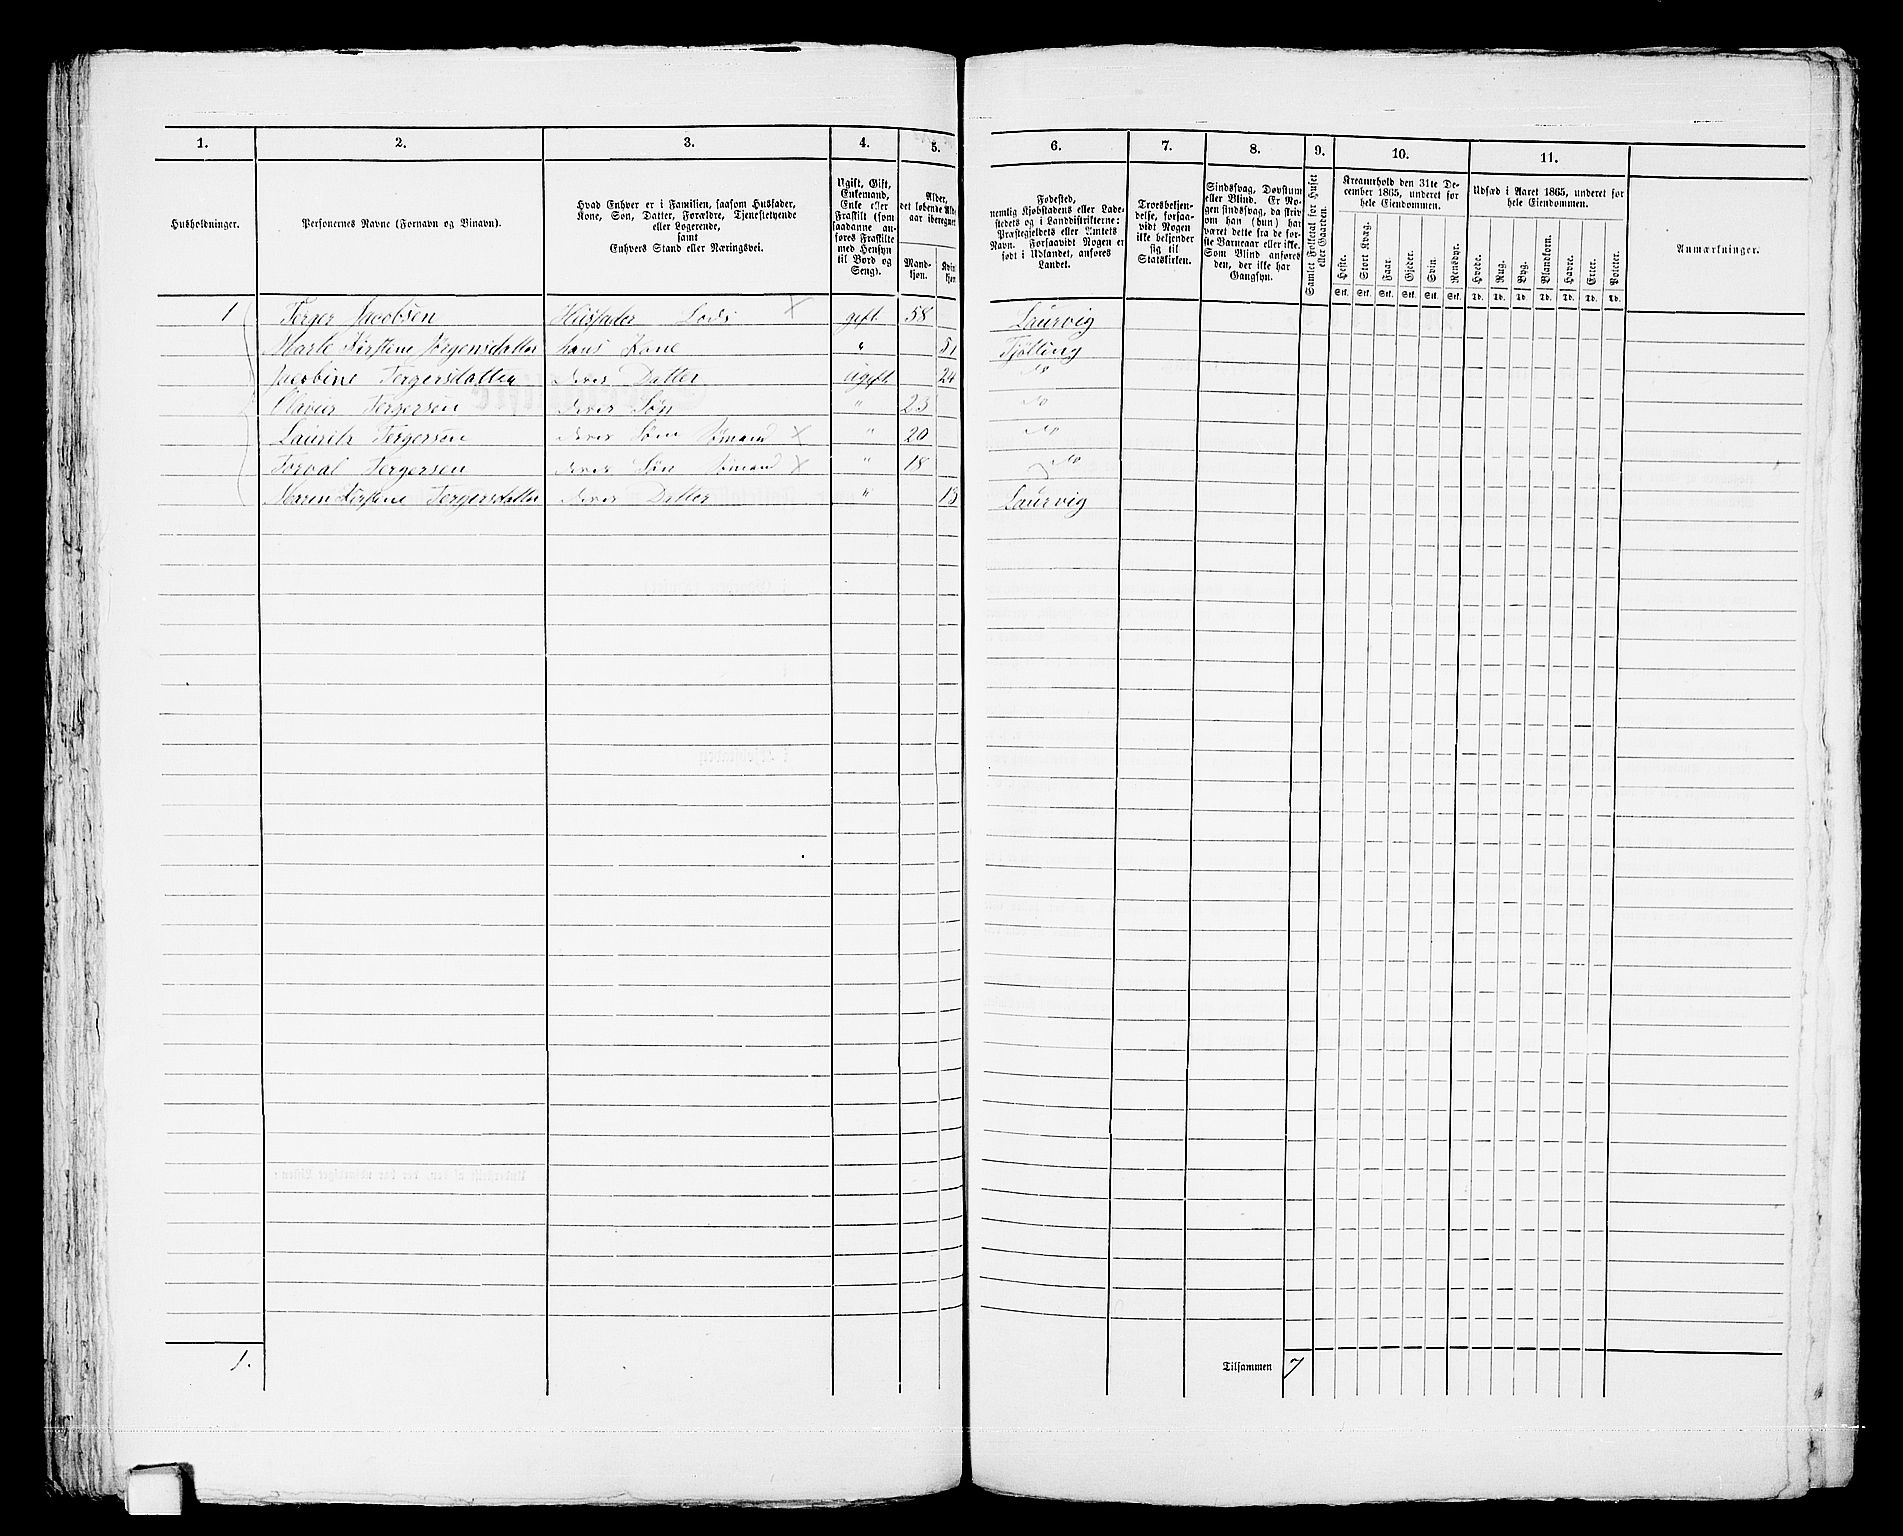 1. 2. 3. 4. 5. 6. 7. 8. 9. 10. 11.
Husholdninger.
Personernes Navne (Fornavn og Binavn).
Hvad Enhver er i Familien, saasom Husfader,
Kone, Søn, Datter, Forældre, Tjenestetyende
eller Logerende,
samt
Enhvers Stand eller Næringsvei.
Ugift, Gift,
Enkemand,
Enke eller
Fraskilt (som
saadanne an-
føres Fraskilte
med Hensyn
til Bord og
Seng).
Alder,
det løbende Al
aar iberegnet
Mand-
kjøn.
Kvin
kjøn
Fødested,
nemlig Kjøbstadens eller Lade-
stedets og i Landdistrikterne:
Præstegjeldets eller Amtets
Navn. Forsaavidt Nogen er
født i Udlandet, anføres
Landet.
Troesbekjen-
delse, forsaa-
vidt Nogen
ikke bekjender
sig til
Statskirken.
Sindssvag, Døvstum
eller Blind. Er No-
gen sindssvag, da skriv
om han (hun) har
været dette fra de for-
ste Barneaar eller ikke.
Som Blind anføres
den, der ikke har
Gangsyn.
Samlet Folketal for Huset
eller Gaarden.
Kreaturhold den 31te De-
cember 1865, underet for
hele Eiendommen.
Heste. Stort Kvæg. Faar. Gjeder. Svin. Rensdyr.
Stk. Stk. Stk. Stk. Stk. Stk.
Udsæd i Aaret 1865, underet for
hele Eiendommen.
Hvede. Rug. Byg. Blandkorn. Havre. Erter. Poteter.
Td. Td. Td. Td. Td. Td. Td.
Anmærkninger.
1 Terger Jacobsen Husfader Lods X gift 58 Laurvig
Marte Kirstine Jörgensdatter hans Kone " 51 Tjölling
Jacobine Tergersdatter deres Datter ugift 24 do
Tergersen deres Søn " 23 do
Lauritz Tergersen deres Søn Sømand X " 20 do
Torval Tergersen deres Søn Sømand X " 18 do
Maren Kirstine Tergersdatter deres Datter " 13 Laurvig
1. Tilsammen 7